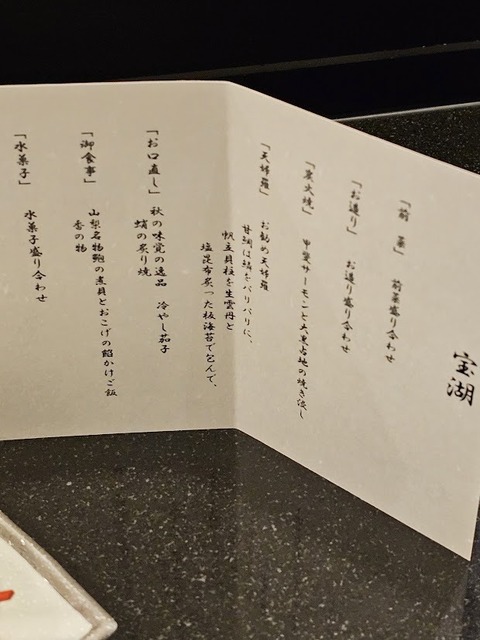 宝湖
「前菜」 前菜盛り合わせ
「お造り」 お造り盛り合わせ
「炭火焼」 甲斐サーモンと大黒占地の焼き浸し
「天婦羅」 お勧め天婦羅
甘鯛は鱗をパリパリに、
帆立貝柱を生雲丹と
塩昆布炙った板海苔で包んで、
「お口直し」 秋の味覚の逸品 冷やし茄子
蛸の炙り焼
「御食事」 山梨名物鮑の煮貝とおこげの餡かけご飯
香の物
「水菓子」 水菓子盛り合わせ